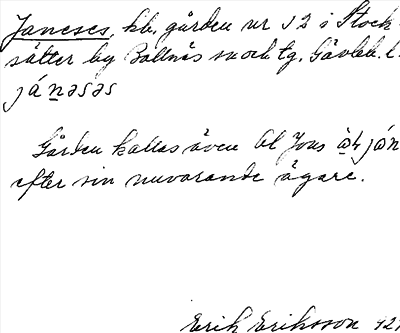 Janeses, hb, gården nr 12 i Stock-
sätter by Bollnäs sn och tg. Gävleb. l.
jánəsəs
Gården kallas även Ol Jons
efter sin nuvarande ägare.
Erik Eriksson 42